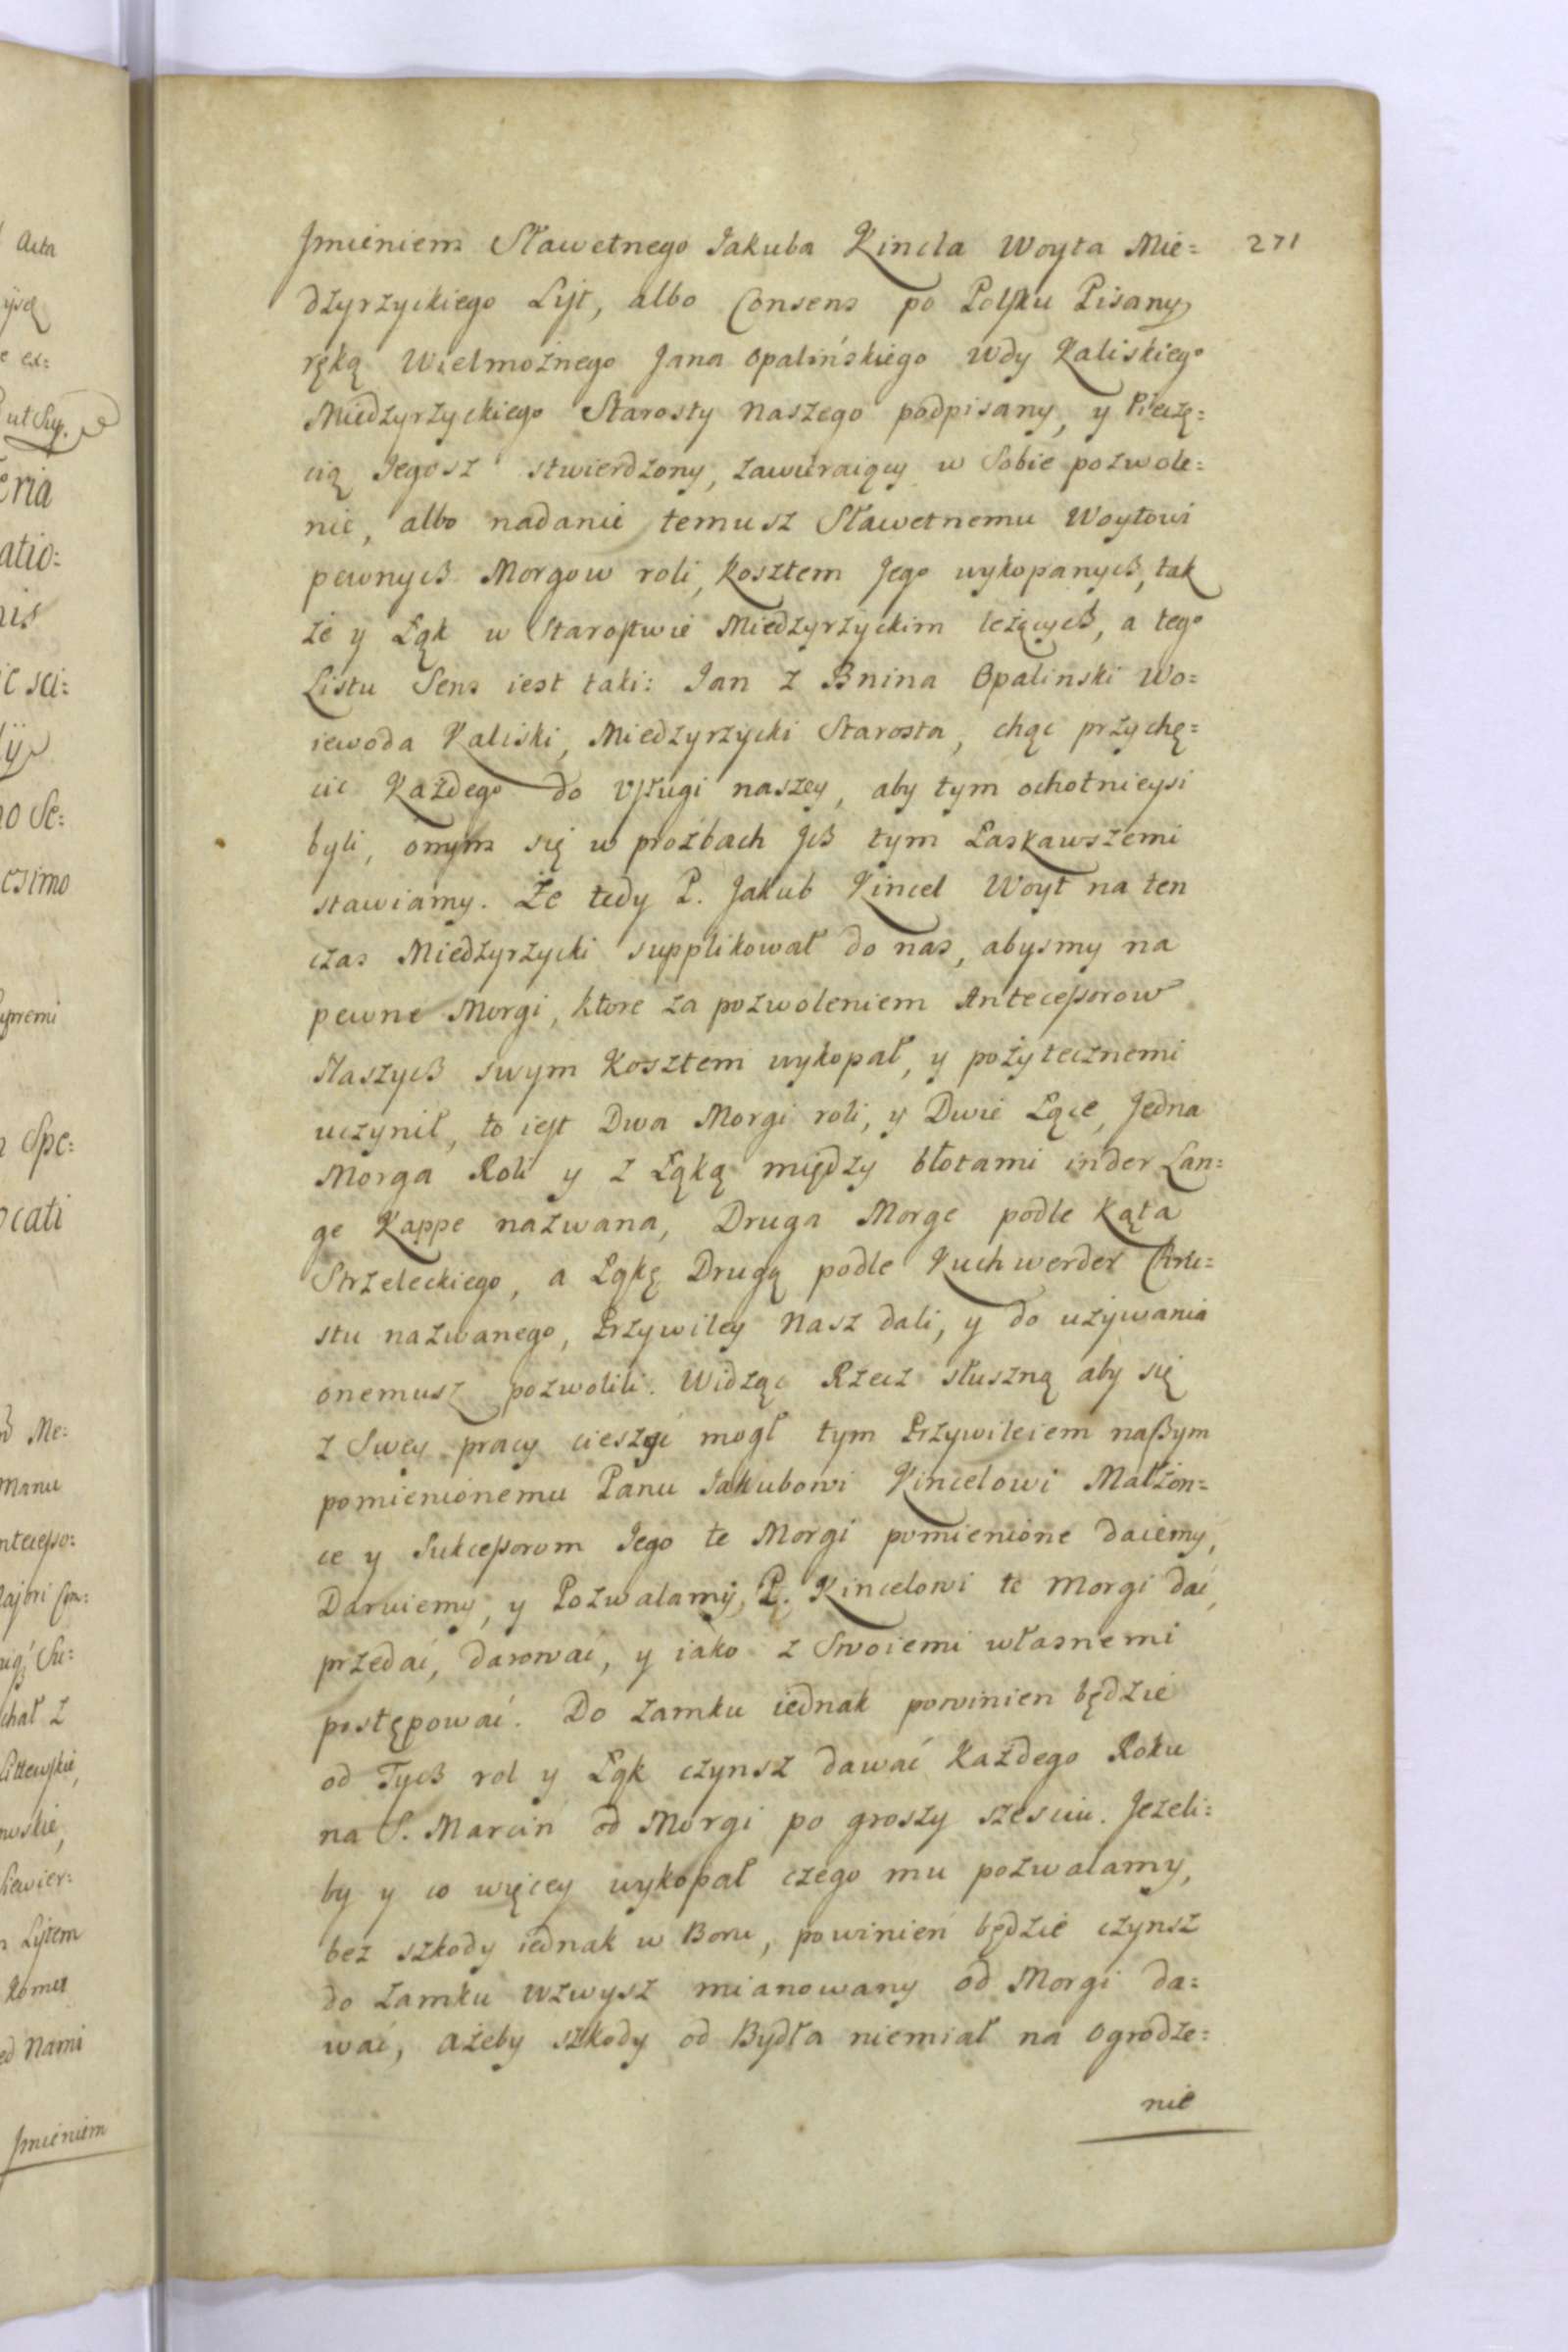 Jmieniem Sławetnego Jakuba Kincla Woyta Mie= 271
dzyrzyckiego List, albo Consens po Polsku Pisany
ręką Wielmożnego Jana Opalińskiego Wdy Kaliskiego
Miedzyrzyckiego Starosty naszego podpisany, y Piecżę=
cią Jegosz stwierdzony, zawieraiący w Sobie pozwole=
nie, albo nadanie temusz Sławetnemu Woytowi
pewnych Morgow roli, kosztem Jego wykopanych, tak
że y Łąk w Starostwie Miedzyrzyckim leżących, a tego
Listu Sens iest taki: Jan z Bnina Opalinski Wo=
iewoda Kaliski, Miedzyrzycki Starosta, chąc przychę=
cic Każdego do Usługi naszey, aby tym ochotnieysi
byli, onym się w prożbach Jch tym Łaskawszemi
stawiamy. Że tedy P. Jakub Kincel Woyt na ten
czas Miedzyrzycki supplikował do nas, abysmy na
pewne Morgi, ktore za pozwoleniem Antecessorow
Naszych swym Kosztem wykopał, y pożytecznemi
uczynił, to iest Dwa Morgi roli, y Dwie Łące, Jedna
Morga Roli y z Łąką między błotami in der Lan=
ge Kappe nazwana, Druga Morge podle Kąta
Strzeleckiego, a Łąkę Drugą podle Kuchwerder
stu nazwanego, Przywiley Nasz dali, y do używania
onemusz pozwolili. Widząc Rzecz słuszną aby się
z Swey pracy cieszyć mogł tym Przywileiem naszym
pomienionemu Panu Jakubowi Kincelowi Małżon=
ce y Sukcessorom Jego te Morgi pomienione daiemy,
Daruiemy, y Pozwalamy, P. Kincelowi te Morgi dać,
przedać, darować, y iako z Swoiemi własnemi
postępować. Do Zamku iednak powinien będzie
od Tych rol y Łąk czynsz dawać Każdego Roku
na S. Marcin od Morgi po groszy szesciu. Jeżeli=
by y co więcey wykopał czego mu pozwalamy,
bez szkody iednak w Boru, powinien będzie czynsz
do Zamku wzwysz mianowany od Morgi da=
wać, ażeby szkody od Bydła niemiał na ogrodze=
nie